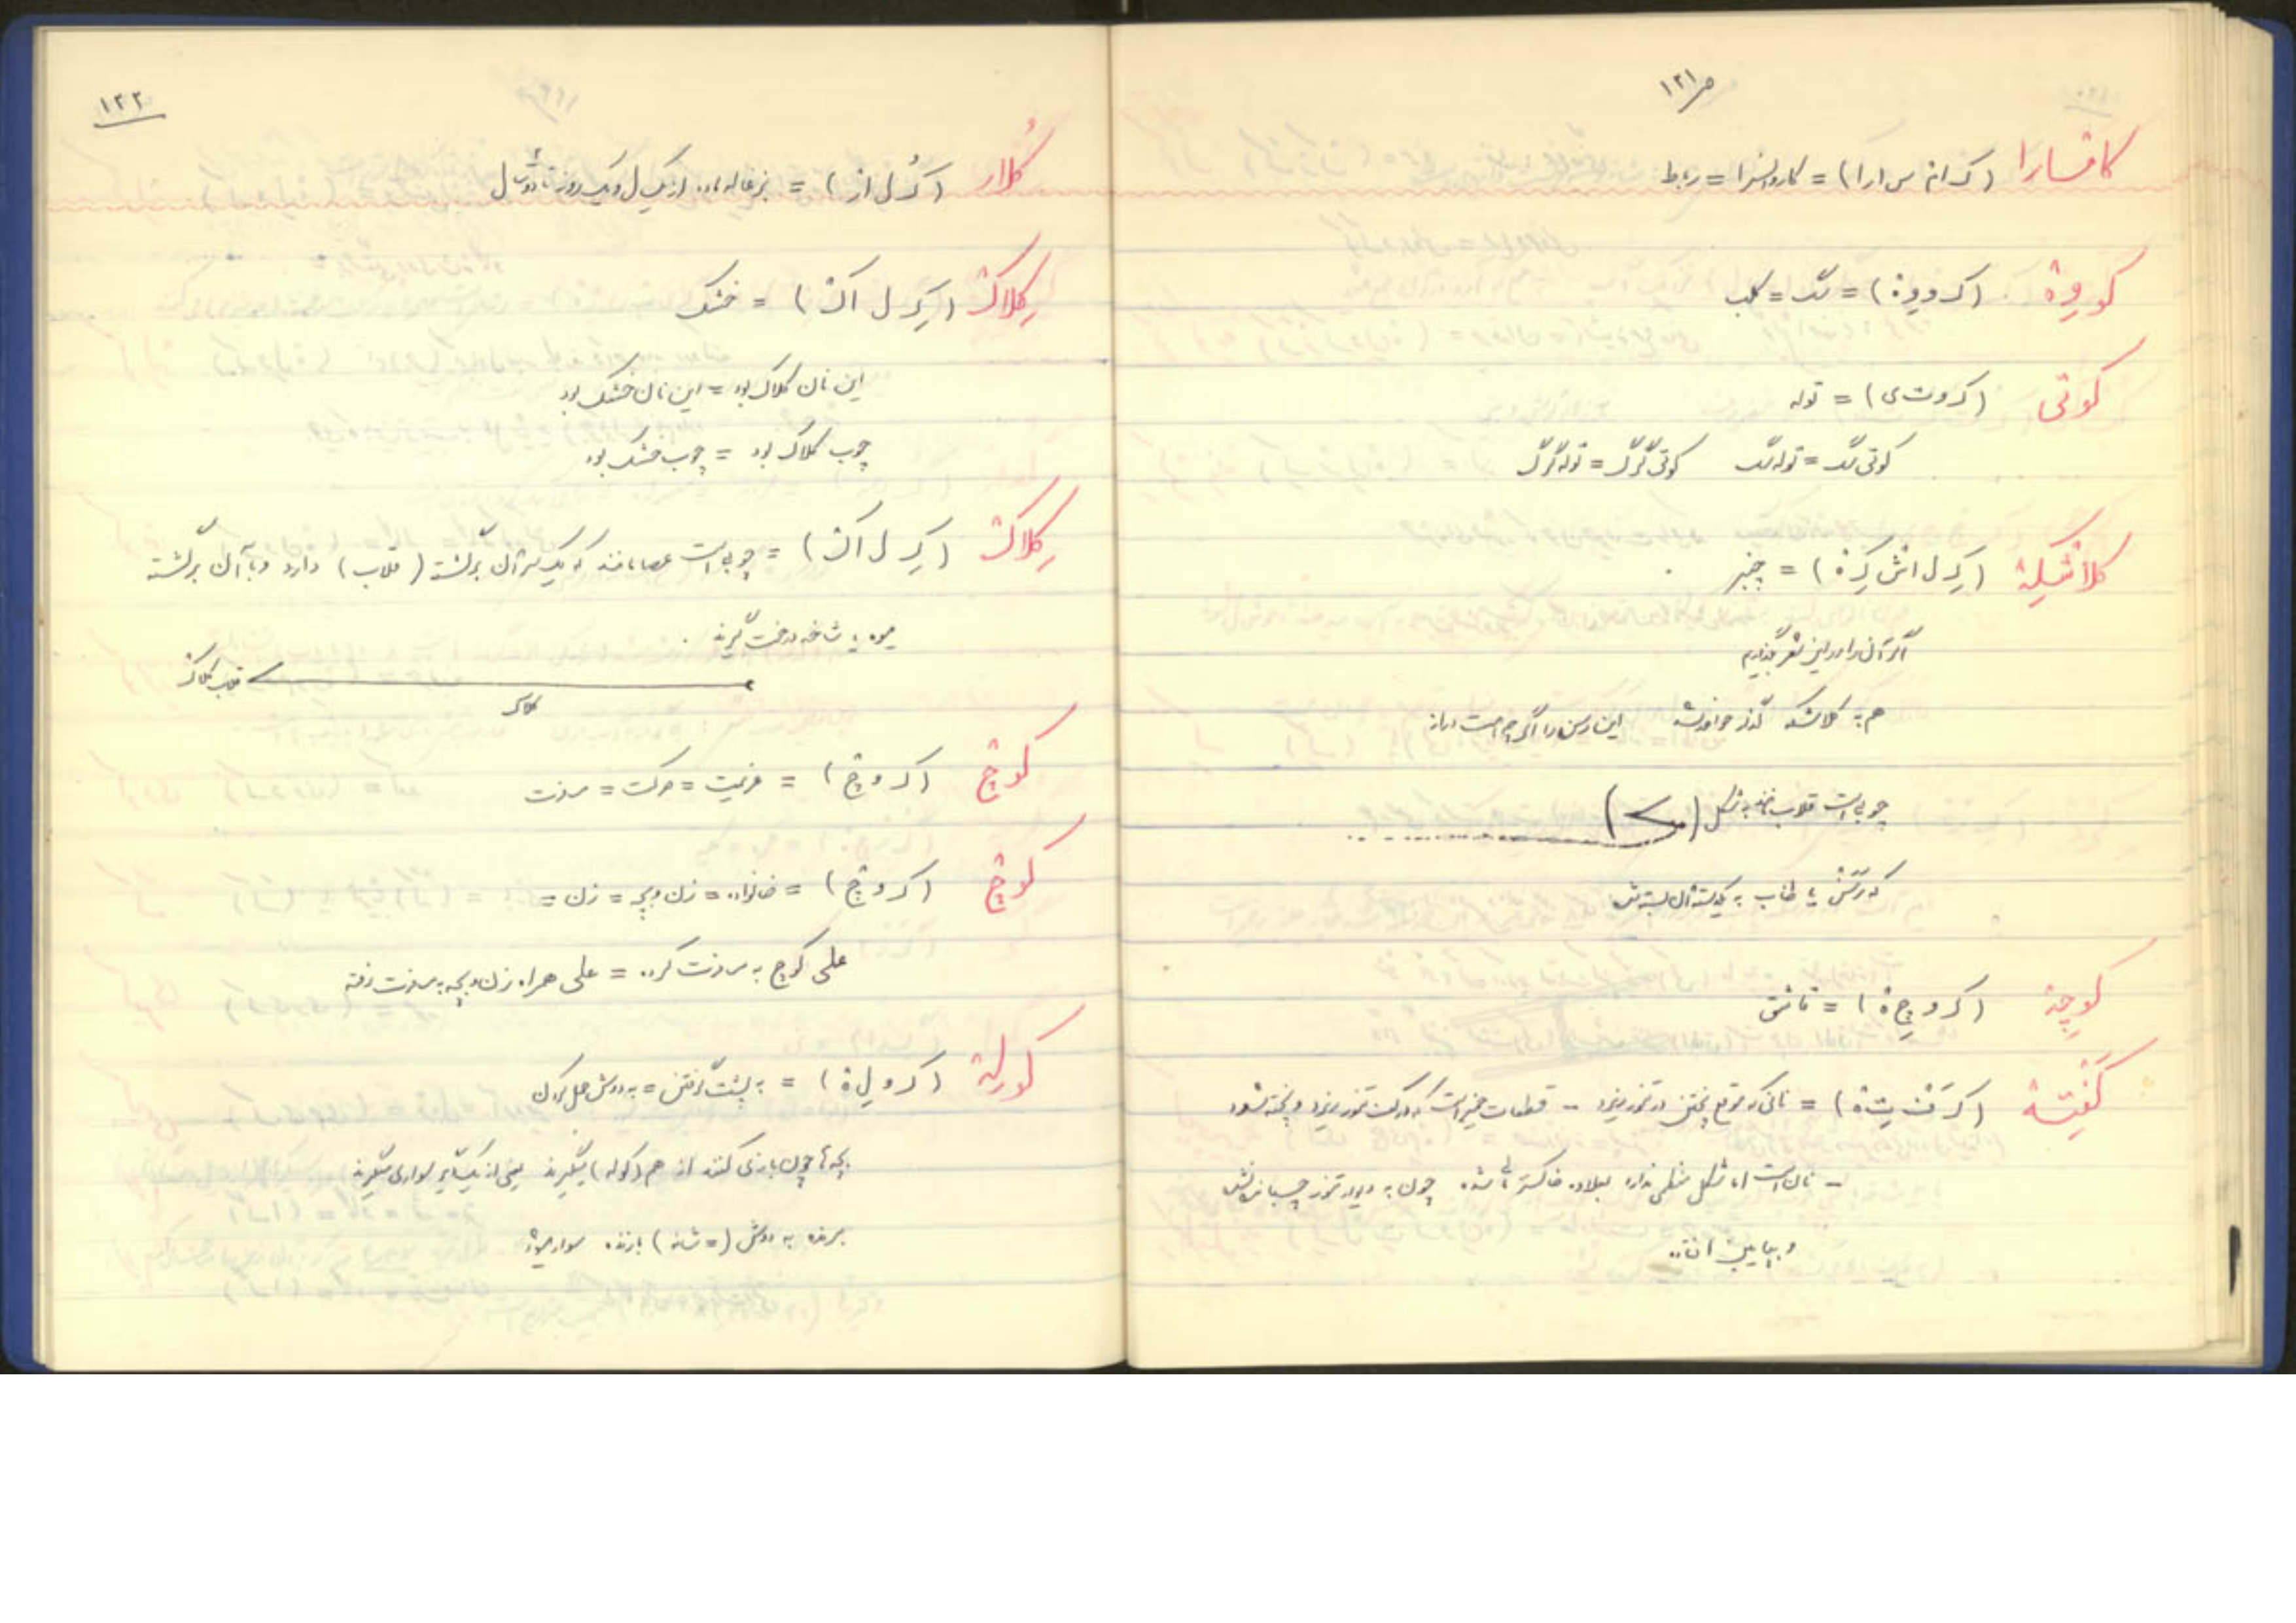 ص۱۲۱
کافسارا (ک اف س ارا) = کاروانسرا = رباط
کووِهْ (ک و وِهْ) = سگ = کلب
کوتی (ک و ت ی) = توله
کوتی سگ = توله سگ کوتی گرگ = توله گرگ
کلاشْکِهْ (کِ ل اشْ کِهْ) = چنبر
هم به کلاشکه گذر خواهد این رسن را اگرچه هست دراز
چوبی است قلاب مانند به شکل
که رسن یا طناب به یک سر آن بسته
کوچِهْ (ک و چِهْ) = قاشق
کَفْتِهْ (کَ فْ تِهْ) = نانی که موقع پختن در تنور بریزد - قطعات خمیر است که در کف تنور بریزد و پخته شود
- نان است اما شکل منظمی ندارد بعلاوه خاکستر شده چون به دیوار تنور چسبان نشده
و بپایین افتاده
۱۲۲
کُلار (کُ ل ار) = بزغاله ماده از یک سال و یک روز تا دو سال
کِلاکْ (کِ ل اکْ) = خشک
این نان کلاک بود = این نان خشک بود
چوب کلاک بود = چوب خشک بود
کِلاکْ (کِ ل اکْ) = چوبی است عصا مانند که یک سر آن برگشته (قلاب) دارد و با آن برگشته
میوه یا شاخه درخت گیرند.
قلاب کلاک
کلاک
کوچ (ک و چ) = عزیمت = حرکت = مسافرت
کوچ (ک و چ) = خانواده = زن و بچه = زن =
علی کوچ به مسافرت کرده = علی همراه زن و بچه به مسافرت رفته
کولِهْ (ک و لِهْ) = به پشت گرفتن = به دوش حمل کردن
بچه‌ها چون بازی کنند از هم (کوله) میگیرند یعنی از یکدیگر سواری میگیرند
برنده به دوش (= شانه) بازنده سوار میشود